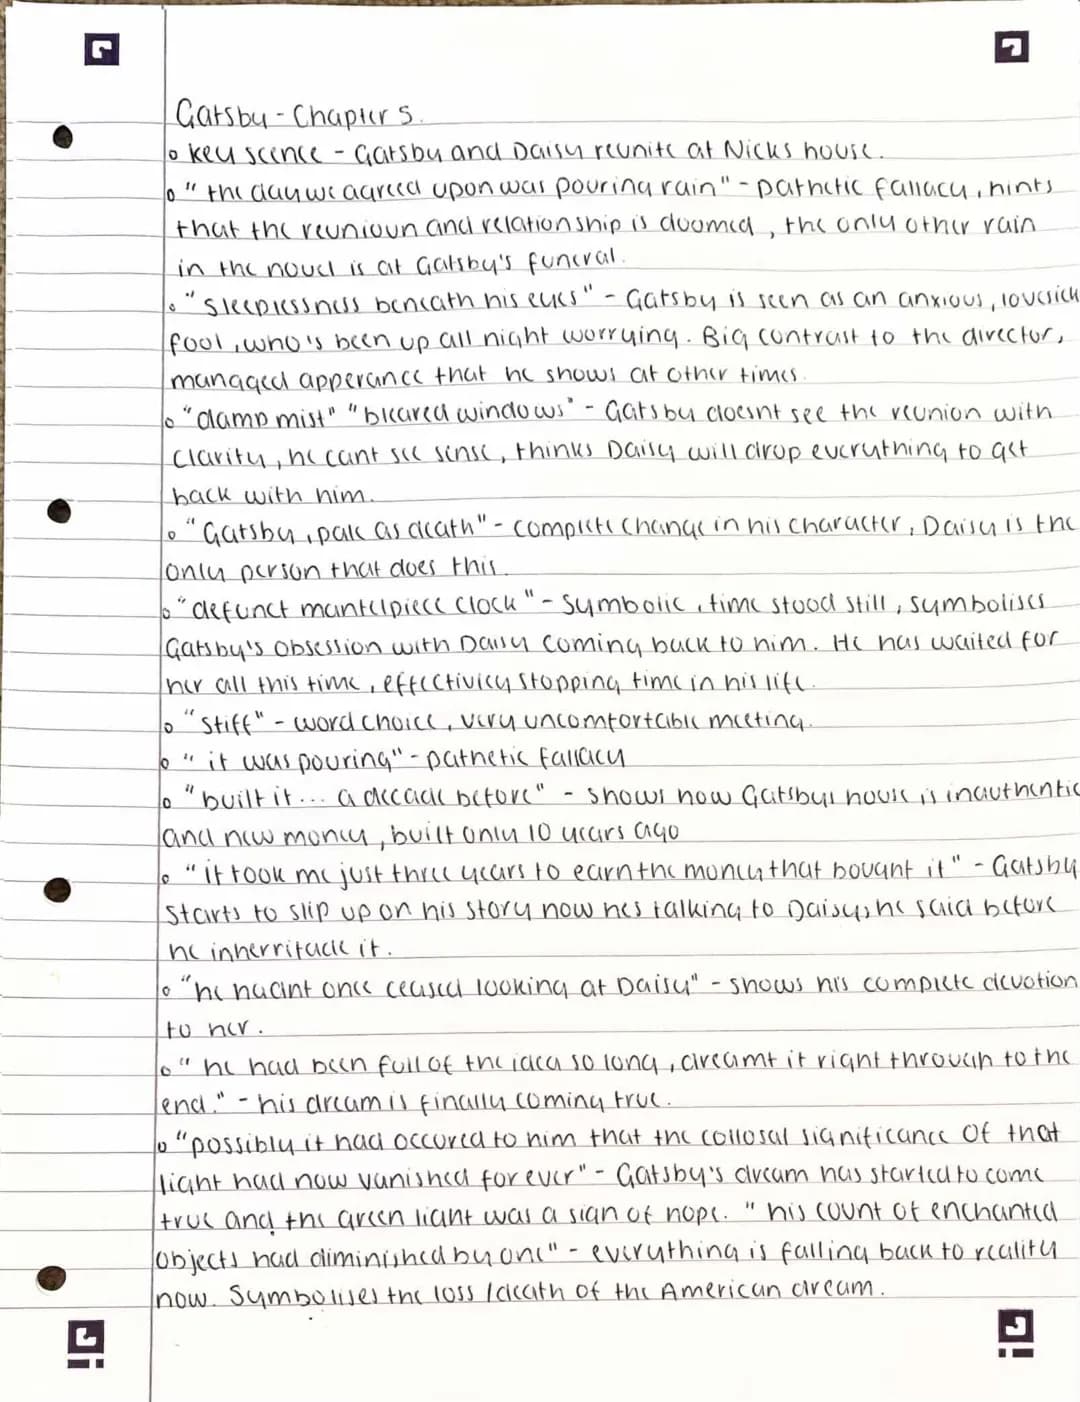 Gatsby - Chapter 5.
key scence - Gatsby and Daisy reunite at Nicks house.
"the day we agreed upon was pouring rain" - pathetic fallacy, hints
that the reunioun and relationship is doomed, the only other rain
in the novel is at Gatsby's funeral.
"sleeplessness beneath his eyes" - Gatsby is seen as an anxious, lovesick
fool, who's been up all night worrying. Big contrast to the director,
managed apperance that he shows at other times.
"damp mist" "bleared windows" - Gatsby doesnt see the reunion with
clarity, he cant see sense, thinks Daisy will drop everything to get
back with him.
"Gatsby, pale as death" - complete change in his character, Daisy is the
only person that does this.
"defunct mantelpiece clock" - symbolic, time stood still, symbolises
Gatsby's obsession with Daisy coming back to him. He has waited for
her all this time, effectively stopping time in his life.
"stiff" - word choice, very uncomfortable meeting.
"it was pouring" - pathetic fallacy
"built it... a decade before" - shows how Gatsbys house is inauthentic
and new money, built only 10 years ago
"it took me just three years to earn the money that bought it" - Gatsby
starts to slip up on his story now hes talking to Daisy, he said before
he inherritade it.
"he hadnt once ceased looking at Daisy" - shows his complete devotion
to her.
"he had been full of the idea so long, dreamt it right through to the
end." - his dream is finally coming true.
"possibly it had occured to him that the collosal significance of that
light had now vanished forever" - Gatsby's dream has started to come
true and the green light was a sign of hope. "his count of enchanted
objects had diminished by one" - everything is falling back to reality
now. Symbolises the loss/death of the American dream.